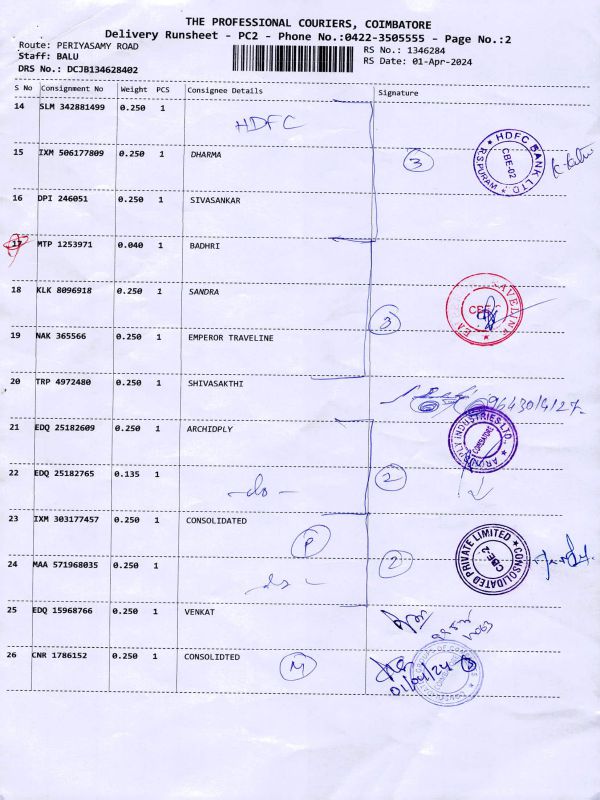 THE PROFESSIONAL COURIERS, COIMBATORE
Delivery Runsheet - PC2 - Phone No.:0422-3505555 - Page No.:2
Route: PERIYASAMY ROAD
RS No.: 1346284
Staff: BALU
RS Date: 01-Apr-2024
DRS No.: DCJB134628402
S No Consignment No Weight PCS Consignee Details Signature
14 SLM 342881499 0.250 1 HDFC
15 IXM 506177809 0.250 1 DHARMA 3
HDFC BANK LTD. RSPURAM CBE-02
16 DPI 246051 0.250 1 SIVASANKAR
17 MTP 1253971 0.040 1 BADHRI
18 KLK 8096918 0.250 1 SANDRA
3
19 NAK 365566 0.250 1 EMPEROR TRAVELINE
20 TRP 4972480 0.250 1 SHIVASAKTHI
21 EDQ 25182609 0.250 1 ARCHIDPLY
22 EDQ 25182765 0.135 1 -do- 2
23 IXM 303177457 0.250 1 CONSOLIDATED P
24 MAA 571968035 0.250 1 -do- 2
CONSOLIDATED PRIVATE LIMITED CBE-2
25 EDQ 15968766 0.250 1 VENKAT
26 CNR 1786152 0.250 1 CONSOLIDTED M
01/04/24